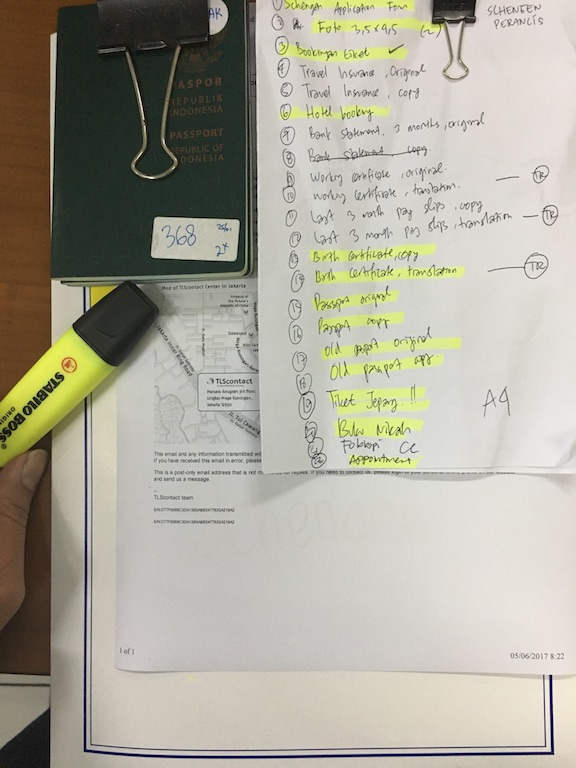 AK
PASPOR
REPUBLIK
INDONESIA
PASSPORT
REPUBLIC OF
INDONESIA
368
2x
SCHENGEN
PERANCIS
1 Schengen Application Form
2 Foto 3,5 x 4,5 (2)
3 Bookingan ticket ✓
4 Travel Insurance, Original
5 Travel Insurance, copy
6 Hotel booking
7 Bank statement, 3 months, original
8 Bank statement, copy
9 Working certificate, original.
10 Working certificate, translation. — TR
11 Last 3 month pay slips, copy
12 Last 3 month pay slips, translation — TR
13 Birth certificate, copy
14 Birth certificate, translation — TR
15 Passport original
16 Passport copy
17 Old passport original
18 Old passport copy
19 Ticket Jepang !!
Buku Nikah
Fotokopi CC
Appointment
A4
STABILO BOSS
ORIGINAL
Map of TLScontact Center in Jakarta
TLScontact
Menara Anugrah 3rd floor,
Lingkar Mega Kuningan,
Jakarta 12950
This email and any information transmitted
If you have received this email in error, please
This is a post-only email address that is not
and send us a message.
--
TLScontact team
1 of 1
05/06/2017 8:22